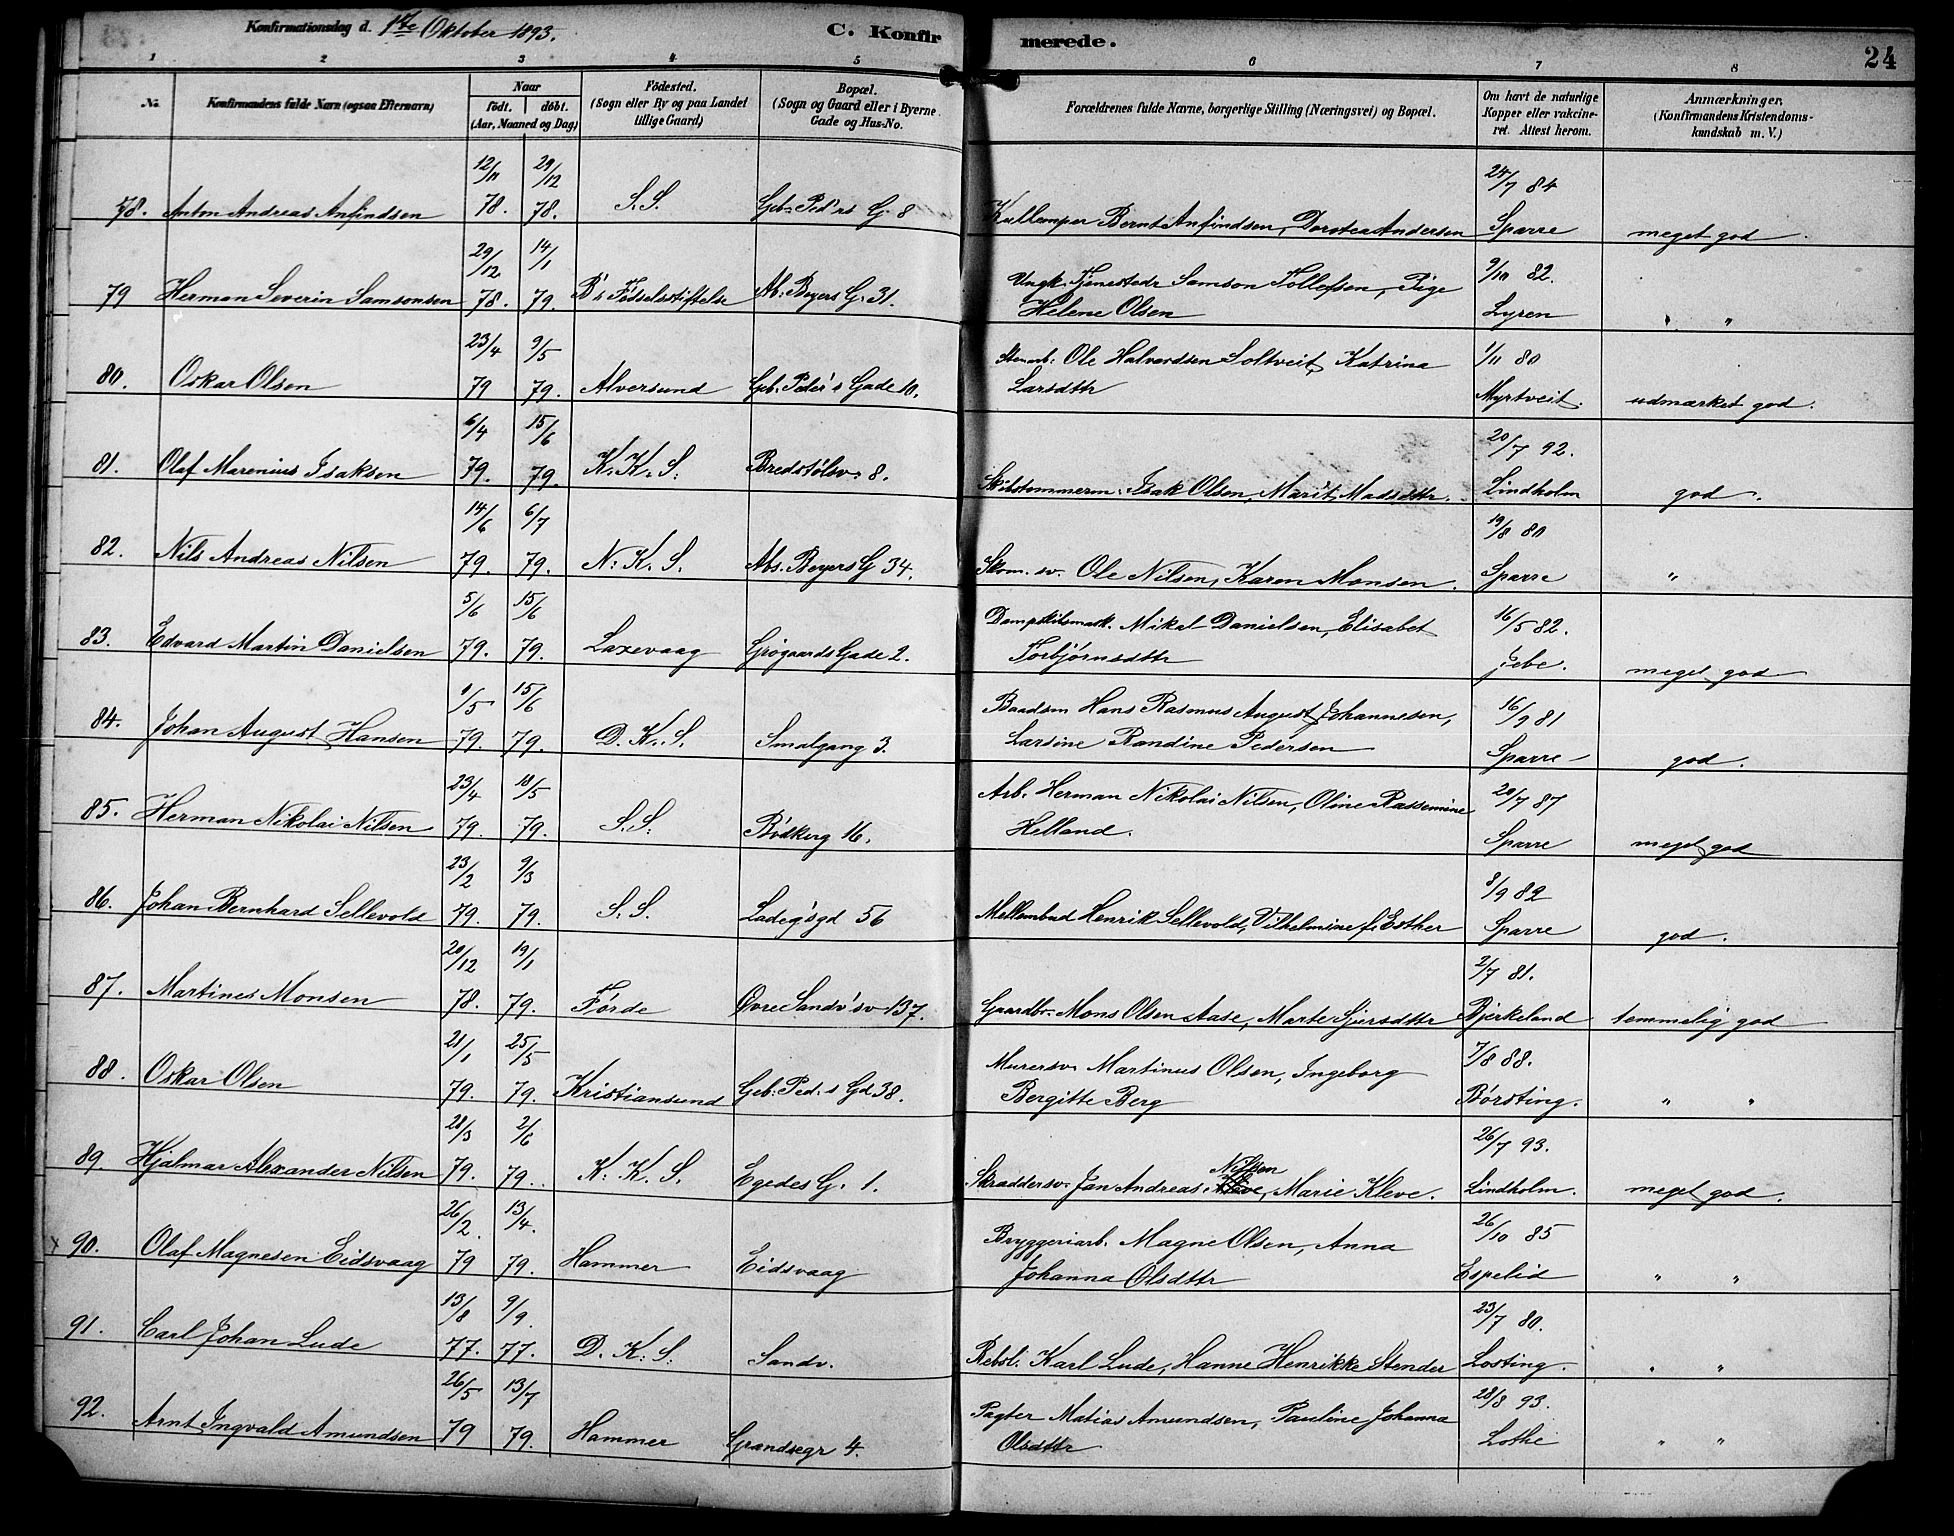 Konfirmationsdag d. 1ste Oktober 1893. C. Konfirmerede. 24
1 2 3 4 5 6 7 8
No. Konfirmandens fulde Navn (ogsaa Efternavn) Naar født. døbt. (Aar, Maaned og Dag) Fødested. (Sogn eller By og paa Landet tillige Gaard) Bopæl. (Sogn og Gaard eller i Byerne Gade og Hus-No. Forældrenes fulde Navne, borgerlige Stilling (Næringsvei) og Bopæl. Om havt de naturlige Kopper eller vakcineret. Attest herom. Anmærkninger. (Konfirmandens Kristendomskundskab m. V.)
12/11 29/12 24/7 84
78. Anton Andreas Anfindsen 78. 78. S.S. Geb. Ped'rs G. 8 Kullemper Bernt Anfindsen, Dorotea Andersen Sparre meget god.
29/12 14/1 Ungk. Tjenestedr Samson Tollefsen, Pige 9/10 82.
79 Herman Severin Samsonsen 78. 79. B's Fødselsstiftelse Ab. Beyers G. 31. Helene Olsen Lyren " "
23/4 9/5 Stenarb. Ole Halvardsen Soltveit, Katrina 1/11 80
80. Oskar Olsen 79 79. Alversund Geb. Peder's Gade 10. Larsdttr Myrtveit. udmærket god.
6/4 15/6 20/7 92.
81. Olaf Marenius Isaksen 79. 79. K. K. S. Bredstølsv. 8. Skibstømmerm. Isak Olsen, Marit Madsdttr. Lindholm god.
14/6 6/7 19/8 80
82. Nils Andreas Nilsen 79. 79. N. K. S. Abs. Beyers G 34. Skom. sv. Ole Nilsen, Karen Monsen. Sparre "
5/6 15/6 Dampskibsmask. Mikal Danielsen, Elisabet 16/5 82.
83. Edvard Martin Danielsen 79. 79. Laxevaag Grøgaards Gade 2. Torbjørnsdttr Jebe. meget god
1/5 15/6 Baadsm Hans Rasmus August Johannesen, 16/9 81
84. Johan August Hansen 79. 79. D. K. S. Smalgang 3. Larsine Randine Pedersen Sparre god.
23/4 18/5 Arb. Herman Nikolai Nilsen, Oline Rassemine 20/7 87
85. Herman Nikolai Nilsen 79. 79. S.S. Bødkerg 16. Helland. Sparre meget god
23/2 9/3 8/9 82
86. Johan Bernhard Sellevold 79. 79. S.S. Ladeg'sgd 56 Mellembud Henrik Sellevold, Vilhelmine f. Esther Sparre god.
20/12 19/1 2/7 81.
87. Martines Monsen 78. 79. Førde Øvre Sandv'sv 137. Gaardbr. Mons Olsen Aase, Marte Sjursdttr Bjerkeland temmelig god
21/1 25/5 Murersv. Martinus Olsen, Ingeborg 7/8 88.
88. Oskar Olsen 79. 79. Kristiansund Geb. Ped.s Gd 38. Bergitte Berg Børsting. " "
28/3 2/6 Nilsen 26/7 93.
89. Hjalmar Alexander Nilsen 79. 79. K. K. S. Egedes G. 1. Skraddersv. Jan Andreas, Marie Kleve. Lindholm. meget god.
26/2. 13/4. Bryggeriarb. Magne Olsen, Anna 26/10 85
x 90. Olaf Magnesen Eidsvaag 79 79. Hammer Eidsvaag Johanna Olsdttr Espelid " "
13/8 9/9. 23/7 80.
91. Carl Johan Lude 77. 77. D. K. S. Sandv. Rebsl. Karl Lude, Hanne Henrikke Stender Losting. " "
26/5 13/7 Pagter Matias Amundsen, Pauline Johanna 28/8 93.
92. Arnt Ingvald Amundsen 79 79. Hammer Grandsegr 4. Olsdttr Lothe " "